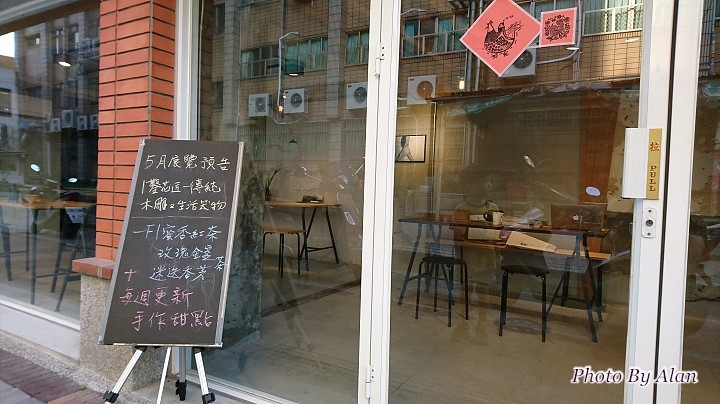 5月展覽預告
傳統
木雕&生活器物
蜜香紅茶
玫瑰金萱茶
迷迭香茶
+
每週更新
手作甜點
拉
PULL
Photo By Alan